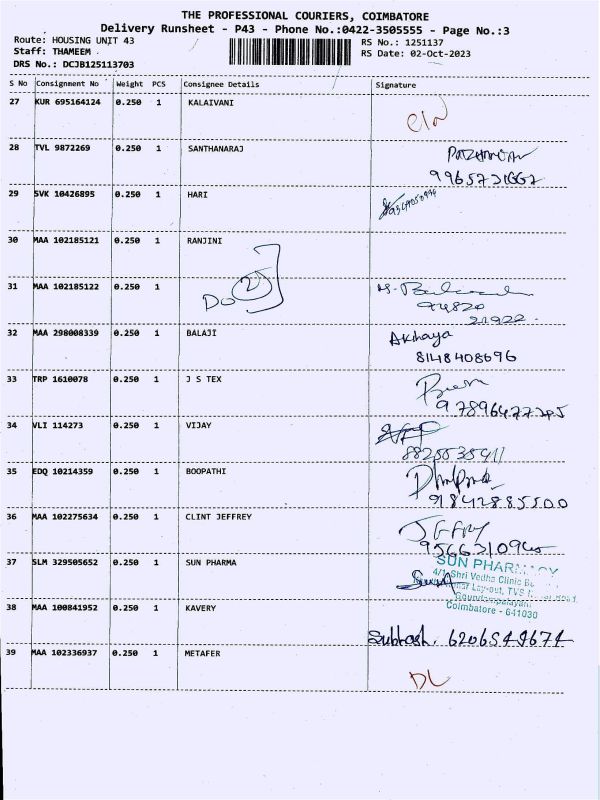 THE PROFESSIONAL COURIERS, COIMBATORE
Delivery Runsheet - P43 - Phone No.:0422-3505555 - Page No.:3
Route: HOUSING UNIT 43
RS No.: 1251137
Staff: THAMEEM
RS Date: 02-Oct-2023
DRS No.: DCJB125113703
S No Consignment No Weight PCS Consignee Details Signature
27 KUR 695164124 0.250 1 KALAIVANI
28 TVL 9872269 0.250 1 SANTHANARAJ
29 SVK 10426895 0.250 1 HARI
30 MAA 102185121 0.250 1 RANJINI
31 MAA 102185122 0.250 1
Do 2
94820
21922
32 MAA 298008339 0.250 1 BALAJI Akihaya
8148408696
33 TRP 1610078 0.250 1 J S TEX
34 VLI 114273 0.250 1 VIJAY
35 EDQ 10214359 0.250 1 BOOPATHI
91842885500
36 MAA 102275634 0.250 1 CLINT JEFFREY Jeffry
37 SLM 329505652 0.250 1 SUN PHARMA SUN PHARMACY
4/1 Shri Vedha Clinic
Lay-out, TVS
Coimbatore - 641030
38 MAA 100841952 0.250 1 KAVERY
Subhash. 6206549674
39 MAA 102336937 0.250 1 METAFER
DL